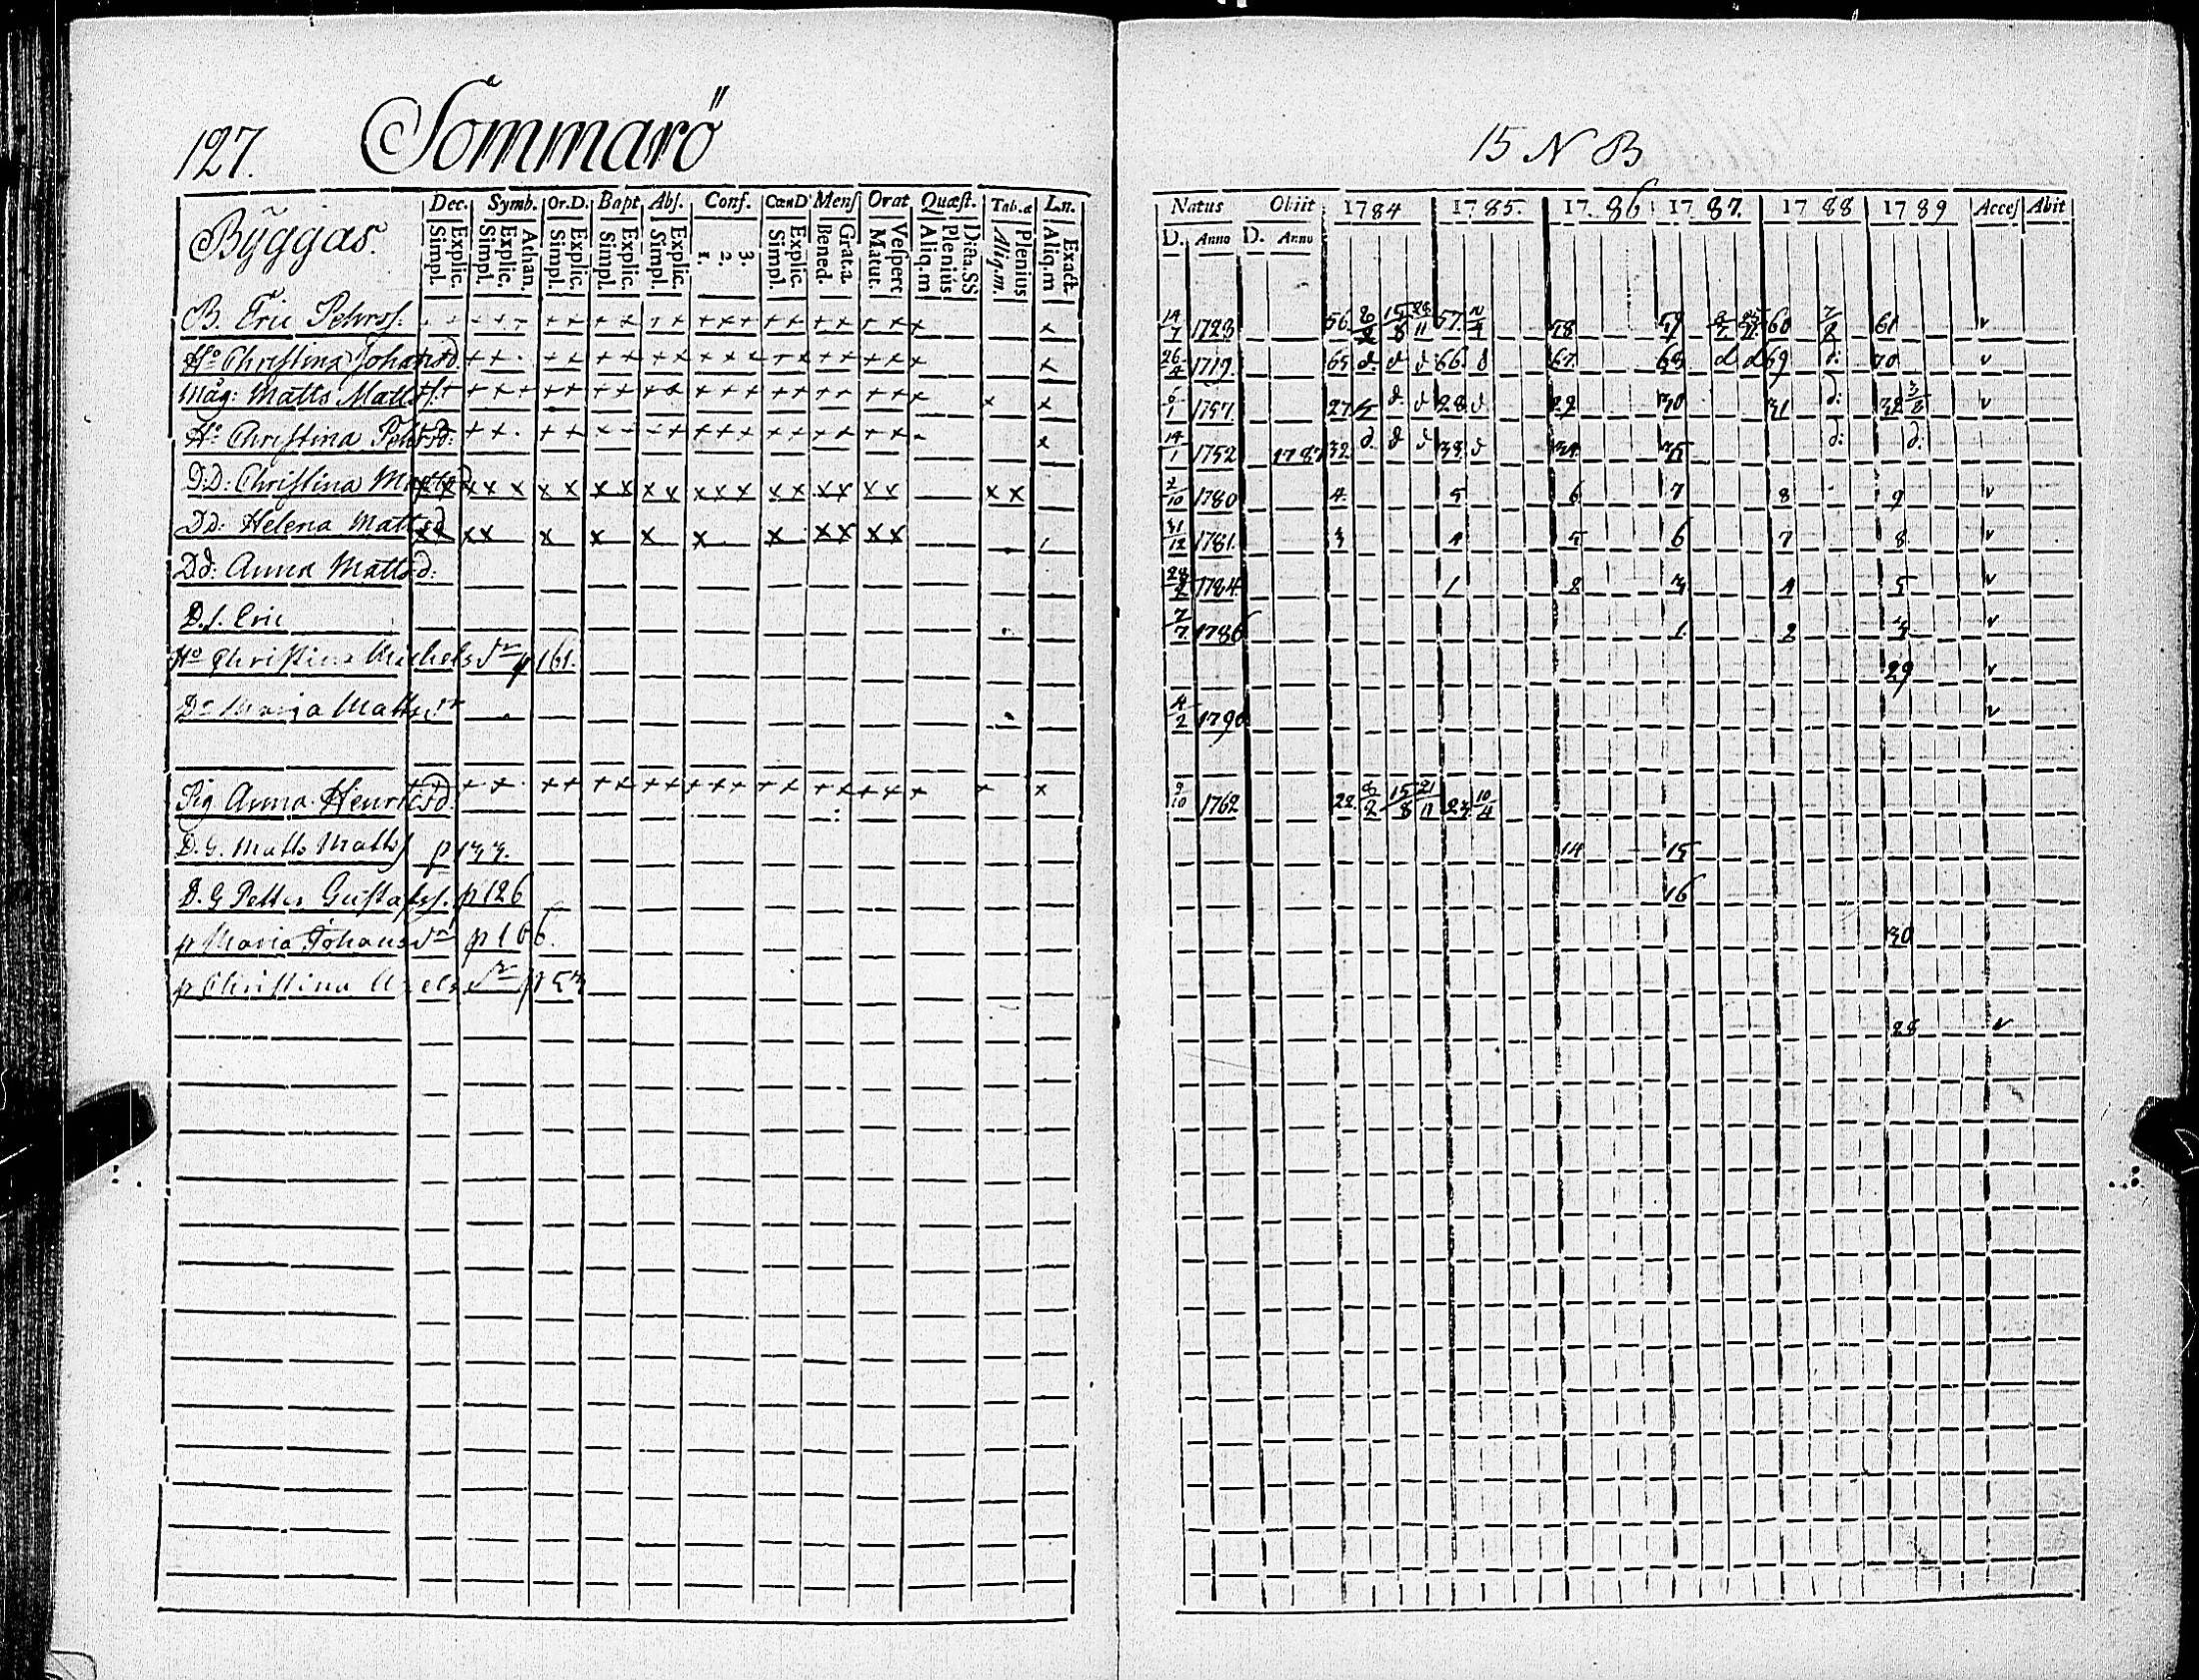 127. Sommarö
15 N B
Dec. Symb. Or.D. Bapt Abs. Conf. CœnD Mens Orat Quæst. Tab.æ Ln.
Explic. Simpl. Athan. Explic. Simpl. Explic. Simpl. Explic. Simpl. Explic. Simpl. 3. 2. 1. Explic. Simpl. Grat.a. Bened. Vespert Matut. Dicta.SS Plenius Aliq.m Plenius Aliq.m. Exact. Aliq.m
Natus Obiit 1784 1785. 17.86 1787. 1788 1789 Acces Abit
D. Anno D. Anno
Byggas.
B. Eric Pehrss. 14/7 1723 56. 8/2 15/8 57. 58 59 60 61 v
H:o Christina Johansd. 26/4 1719. 65 d. d d 66. d 67. 68 d d 69 d: 70 v
Måg: Matts Mattss. 6/1 1757 27 d d 28 d 29 30 31 d: 32 v
H:o Christina Pehrsd: 14/1 1752 1787 32 d. d d 33 d 34 35 d: d:
D.D: Christina Mattsd 2/10 1780 4. 5 6 7 8 9 v
Dd: Helena Mattsd 31/12 1781. 3 4 5 6 7 8 v
D.d: Anna Mattsd: 28/2 1784 1 2 3 4 5 v
D. s. Eric 7/7 1786 1. 2 3 v
H:o Christina Michels dr p 161. 29 v
Dr Maija Matts dr 4/2 1790 v
Pig Anna Henricsd. 9/10 1762 22 8/2 15/8 21/11 23 10/4
D. G. Matts Mattss p 133. 14 15
D. G Petter Gustafss. p 126 16
p Maria Johans dr p 166. 30
p Christina Axels dr p 53
28 v